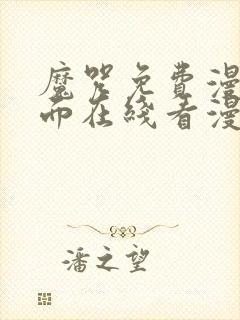 魔咒免费漫
而在线看漫
潘之望